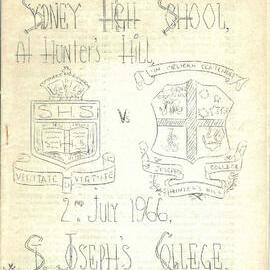 SYDNEY HIGH SCHOOL,
At Hunter's Hill,
SHS
Vs
IN MELIORA CONTENDE
VERITATE VIRTUTE
ST JOSEPH'S COLLEGE
HUNTER'S HILL
2nd July 1966,
St Joseph's College.